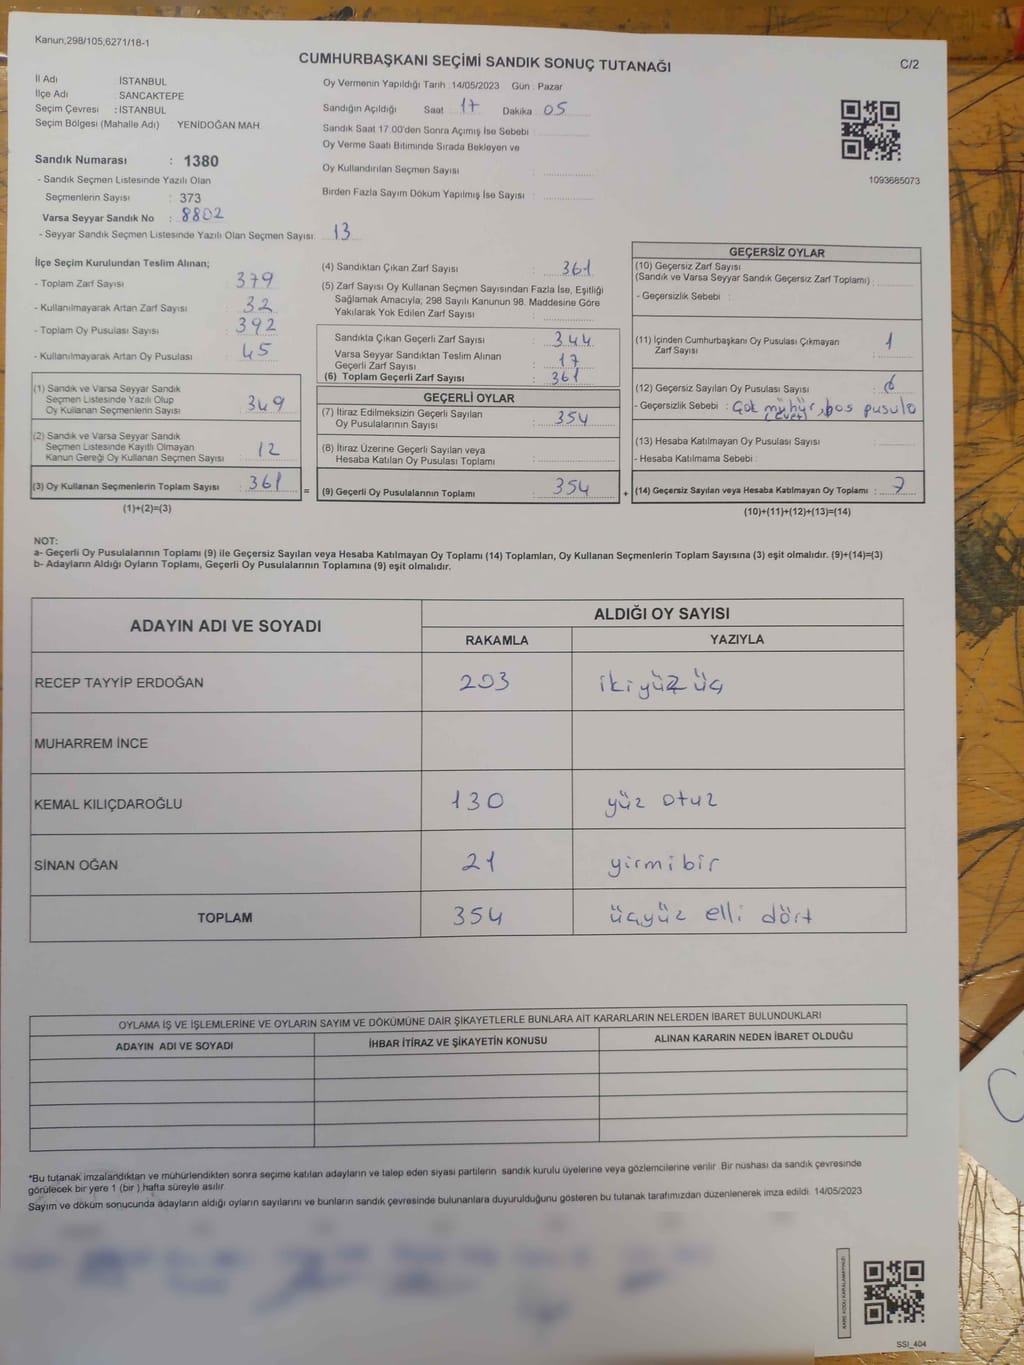 Kanun,298/105,6271/18-1
CUMHURBAŞKANI SEÇİMİ SANDIK SONUÇ TUTANAĞI
C/2
İl Adı İSTANBUL
İlçe Adı SANCAKTEPE
Seçim Çevresi : İSTANBUL
Seçim Bölgesi (Mahalle Adı) YENİDOĞAN MAH.
Sandık Numarası : 1380
- Sandık Seçmen Listesinde Yazılı Olan
Seçmenlerin Sayısı : 373
Varsa Seyyar Sandık No : 8802
- Seyyar Sandık Seçmen Listesinde Yazılı Olan Seçmen Sayısı: 13
Oy Vermenin Yapıldığı Tarih :14/05/2023 Gün : Pazar
Sandığın Açıldığı Saat 17 Dakika 05
Sandık Saat 17:00'den Sonra Açımış İse Sebebi :
Oy Verme Saati Bitiminde Sırada Bekleyen ve
Oy Kullandırılan Seçmen Sayısı :
Birden Fazla Sayım Döküm Yapılmış İse Sayısı :
1093685073
İlçe Seçim Kurulundan Teslim Alınan;
- Toplam Zarf Sayısı : 379
- Kullanılmayarak Artan Zarf Sayısı : 32
- Toplam Oy Pusulası Sayısı : 392
- Kullanılmayarak Artan Oy Pusulası : 45
(1) Sandık ve Varsa Seyyar Sandık
Seçmen Listesinde Yazılı Olup
Oy Kullanan Seçmenlerin Sayısı : 349
(2) Sandık ve Varsa Seyyar Sandık
Seçmen Listesinde Kayıtlı Olmayan
Kanun Gereği Oy Kullanan Seçmen Sayısı : 12
(3) Oy Kullanan Seçmenlerin Toplam Sayısı : 361
(1)+(2)=(3)
=
(4) Sandıktan Çıkan Zarf Sayısı : 361
(5) Zarf Sayısı Oy Kullanan Seçmen Sayısından Fazla İse, Eşitliği
Sağlamak Amacıyla; 298 Sayılı Kanunun 98. Maddesine Göre
Yakılarak Yok Edilen Zarf Sayısı :
Sandıkta Çıkan Geçerli Zarf Sayısı : 344
Varsa Seyyar Sandıktan Teslim Alınan
Geçerli Zarf Sayısı : 17
(6) Toplam Geçerli Zarf Sayısı : 361
GEÇERLİ OYLAR
(7) İtiraz Edilmeksizin Geçerli Sayılan
Oy Pusulalarının Sayısı : 354
(8) İtiraz Üzerine Geçerli Sayılan veya
Hesaba Katılan Oy Pusulası Toplamı :
(9) Geçerli Oy Pusulalarının Toplamı : 354
+
GEÇERSİZ OYLAR
(10) Geçersiz Zarf Sayısı
(Sandık ve Varsa Seyyar Sandık Geçersiz Zarf Toplamı) :
- Geçersizlik Sebebi :
(11) İçinden Cumhurbaşkanı Oy Pusulası Çıkmayan
Zarf Sayısı : 1
(12) Geçersiz Sayılan Oy Pusulası Sayısı : 6
- Geçersizlik Sebebi : Çok mühür, boş pusula
(evet)
(13) Hesaba Katılmayan Oy Pusulası Sayısı :
- Hesaba Katılmama Sebebi :
(14) Geçersiz Sayılan veya Hesaba Katılmayan Oy Toplamı : 7
(10)+(11)+(12)+(13)=(14)
NOT:
a- Geçerli Oy Pusulalarının Toplamı (9) ile Geçersiz Sayılan veya Hesaba Katılmayan Oy Toplamı (14) Toplamları, Oy Kullanan Seçmenlerin Toplam Sayısına (3) eşit olmalıdır. (9)+(14)=(3)
b- Adayların Aldığı Oyların Toplamı, Geçerli Oy Pusulalarının Toplamına (9) eşit olmalıdır.
ADAYIN ADI VE SOYADI ALDIĞI OY SAYISI
RAKAMLA YAZIYLA
RECEP TAYYİP ERDOĞAN 203 ikiyüz üç
MUHARREM İNCE
KEMAL KILIÇDAROĞLU 130 yüz otuz
SİNAN OĞAN 21 yirmibir
TOPLAM 354 üçyüz elli dört
OYLAMA İŞ VE İŞLEMLERİNE VE OYLARIN SAYIM VE DÖKÜMÜNE DAİR ŞİKAYETLERLE BUNLARA AİT KARARLARIN NELERDEN İBARET BULUNDUKLARI
ADAYIN ADI VE SOYADI İHBAR İTİRAZ VE ŞİKAYETİN KONUSU ALINAN KARARIN NEDEN İBARET OLDUĞU
*Bu tutanak imzalandıktan ve mühürlendikten sonra seçime katılan adayların ve talep eden siyasi partilerin sandık kurulu üyelerine veya gözlemcilerine verilir. Bir nüshası da sandık çevresinde
görülecek bir yere 1 (bir) hafta süreyle asılır.
Sayım ve döküm sonucunda adayların aldığı oyların sayılarını ve bunların sandık çevresinde bulunanlara duyurulduğunu gösteren bu tutanak tarafımızdan düzenlenerek imza edildi. 14/05/2023
KARE KODU KARALAMAYINIZ!
SSI_404